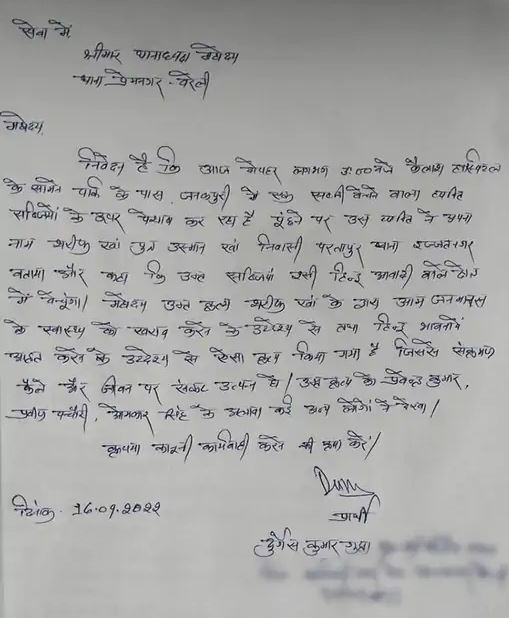 सेवा में
श्रीमान थानाध्यक्ष महोदय
थाना प्रेमनगर - बरेली
महोदय,
निवेदन है कि आज दोपहर लगभग 3:00 बजे कैलाश हास्पिटल
के सामने पार्क के पास जनकपुरी में एक सब्जी बेचने वाला व्यक्ति
सब्जियों के ऊपर पेशाब कर रहा है पूंछने पर उस व्यक्ति ने अपना
नाम शरीफ खां पुत्र उस्मान खां निवासी परतापुर थाना इज्जतनगर
बताया और कहा कि उक्त सब्जियां इसी हिन्दू आबादी वाले क्षेत्र
में बेचूंगा। महोदय उक्त कृत्य शरीफ खां के द्वारा आम जनमानस
के स्वास्थ्य को खराब करने के उद्देश्य से तथा हिन्दू भावनायें
आहत करने के उद्देश्य से ऐसा कृत्य किया गया है जिससे संक्रमण
फैले और जीवन पर संकट उत्पन्न हो। उक्त कृत्य को कुमार,
, ओमकार सिंह के अलावा कई अन्य लोगों ने देखा।
कृपया कानूनी कार्यवाही करने की कृपा करें।
प्रार्थी
दिनांक - 16.09.2022
दुर्गेश कुमार गुप्ता